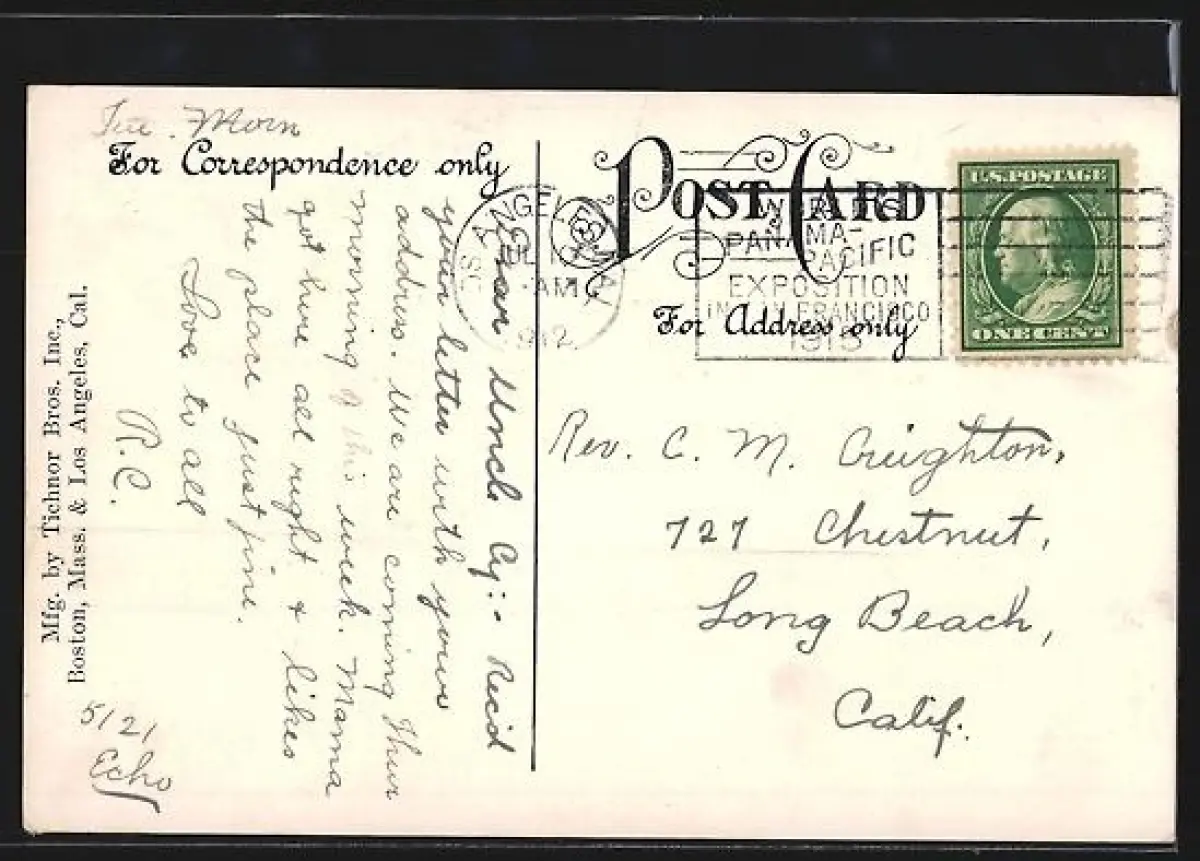 Tue. Morn
For Correspondence only
Dear Uncle Cy:- Rec'd
your letter with your
address. We are coming Thur
morning of this week. Mama
got here all right & likes
the place just fine.
Love to all
R.C.
5121
Echo
Mfg. by Tichnor Bros. Inc.,
Boston, Mass. & Los Angeles, Cal.
POST CARD
For Address only
LOS ANGELES, CAL
JUL
AM
1912
WORLD'S
PANAMA-
PACIFIC
EXPOSITION
IN SAN FRANCISCO
1915
U.S. POSTAGE
ONE CENT
Rev. C. M. Creighton,
727 Chestnut,
Long Beach,
Calif.